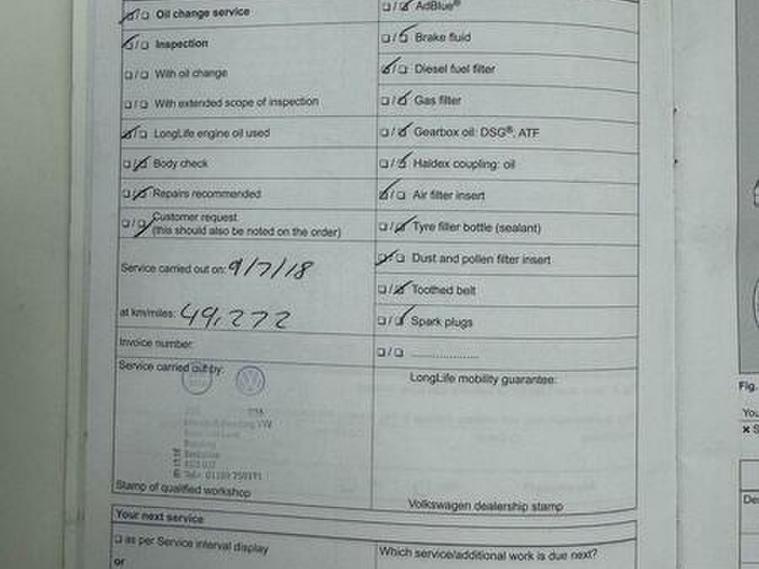 Oil change service
Inspection
With oil change
With extended scope of inspection
LongLife engine oil used
Body check
Repairs recommended
Customer request
(this should also be noted on the order)
Service carried out on: 9/7/18
at km/miles: 49,272
Invoice number:
Service carried out by:
Reading
Berkshire
Tel:
Stamp of qualified workshop
AdBlue®
Brake fluid
Diesel fuel filter
Gas filter
Gearbox oil: DSG®, ATF
Haldex coupling: oil
Air filter insert
Tyre filler bottle (sealant)
Dust and pollen filter insert
Toothed belt
Spark plugs
....................
LongLife mobility guarantee:
Volkswagen dealership stamp
Your next service
as per Service interval display
or
Which service/additional work is due next?
Fig.
You